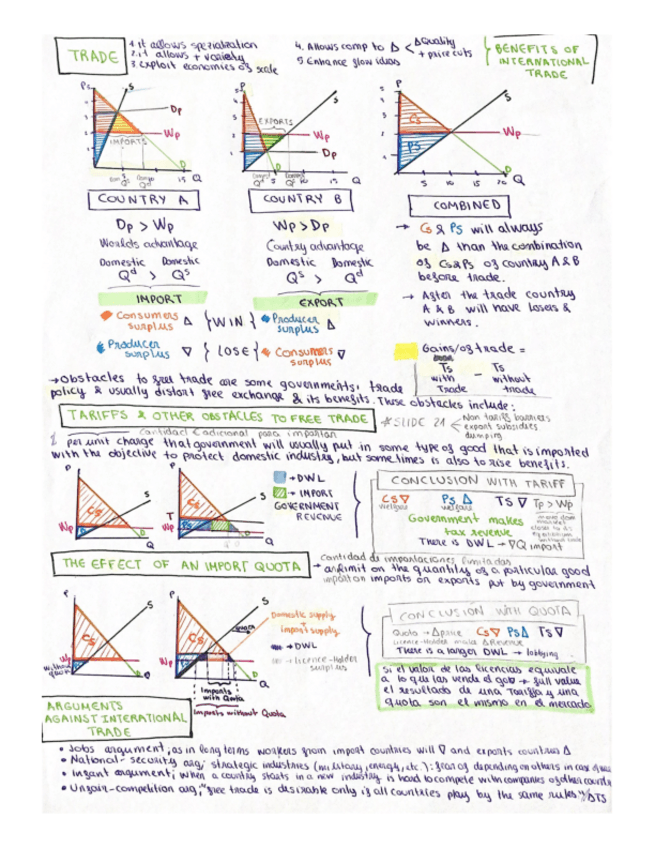 TRADE
1. it allows spezialitation
2. it allows + variety
3. Exploit economies of scale
4. Allows comp to Δ < ΔQuality
+ price cuts
5. Enhance flow ideas
BENEFITS OF
INTERNATIONAL
TRADE
P
S
Dp
Wp
IMPORTS
D
15 Q
P
S
EXPORTS
Wp
Dp
D
5 10 15 Q
P
S
CS
Wp
PS
D
5 10 15 20 Q
COUNTRY A
Dp > Wp
Worlds advantage
Domestic Domestic
Qd > Qs
IMPORT
Consumers surplus Δ
Producer surplus ∇
{WIN}
{LOSE}
COUNTRY B
Wp > Dp
Country advantage
Domestic Domestic
Qs > Qd
EXPORT
Producer surplus Δ
Consumers surplus ∇
COMBINED
→ CS & PS will always
be Δ than the combination
of CS & PS of country A & B
before trade.
→ After the trade country
A & B will have losers &
winners.
Gains/of trade =
TS with Trade – TS without trade
→Obstacles to free trade are some governments, trade
policy & usually distort free exchange & its benefits. These obstacles include:
TARIFFS & OTHER OBSTACLES TO FREE TRADE
#SLIDE 21
Non tariff barriers
export subsidies
dumping
cantidad adicional para importar
per unit change that government will usually put in some type of good that is imported
with the objective to protect domestic industry, but some times is also to rise benefits.
P
S
CS
Wp
Q
P
S
CS
T
Wp
PS
Q
→ DWL
→ IMPORT
GOVERNMENT
REVENUE
CONCLUSION WITH TARIFF
CS∇ PS Δ TS ∇ Tp > Wp
welfare welfare
Government makes
tax revenue
There is DWL → ∇Q import
THE EFFECT OF AN IMPORT QUOTA
cantidad de importaciones limitadas
→ a limit on the quantity of a particular good
important imports on exports put by government
P
S
CS
Wp
without quota
Q
P
S
CS
Wp
Quota
Q
Imports
with Quota
Imports without Quota
Domestic supply
+
import supply
→ DWL
→ Licence-Holder
surplus
CONCLUSION WITH QUOTA
Quota → Δprice CS∇ PSΔ TS∇
Licence-Holder make Δ Revenue
There is a larger DWL → lobbying
Si el valor de las licencias equivale
a lo que las vende el gob → full value
el resultado de una tariffa y una
quota son el mismo en el mercado
ARGUMENTS
AGAINST INTERNATIONAL
TRADE
• Jobs argument, as in long terms workers from import countries will ∇ and exports countries Δ
• National-security arg; strategic industries (military, energy, etc.): fear of depending on others in case of war
• Infant argument; when a country starts in a new industry is hard to compete with companies of other countr
• Unfair-competition arg, "free trade is desirable only if all countries play by the same rules"